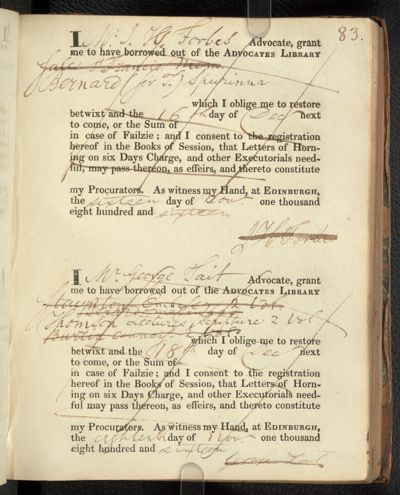 83.
I Mr. J. H. Forbes Advocate, grant
me to have borrowed out of the ADVOCATES LIBRARY
Bernard (Sr T.) Spurinna
which I oblige me to restore
betwixt and the 16th day of Decr next
to come, or the Sum of
in case of Failzie; and I consent to the registration
hereof in the Books of Session, that Letters of Horn-
ing on six Days Charge, and other Executorials need-
ful, may pass thereon, as effeirs, and thereto constitute
my Procurators. As witness my Hand, at EDINBURGH,
the sixteen day of Novr one thousand
eight hundred and sixteen
J H Forbes
I Mr. George Tait Advocate, grant
me to have borrowed out of the ADVOCATES LIBRARY
Thomson Lectures Scripture 2 Vol
which I oblige me to restore
betwixt and the 18th day of Decr next
to come, or the Sum of
in case of Failzie; and I consent to the registration
hereof in the Books of Session, that Letters of Horn-
ing on six Days Charge, and other Executorials need-
ful may pass thereon, as effeirs, and thereto constitute
my Procurators. As witness my Hand, at EDINBURGH,
the eighteenth day of Novr one thousand
eight hundred and sixteen
George Tait